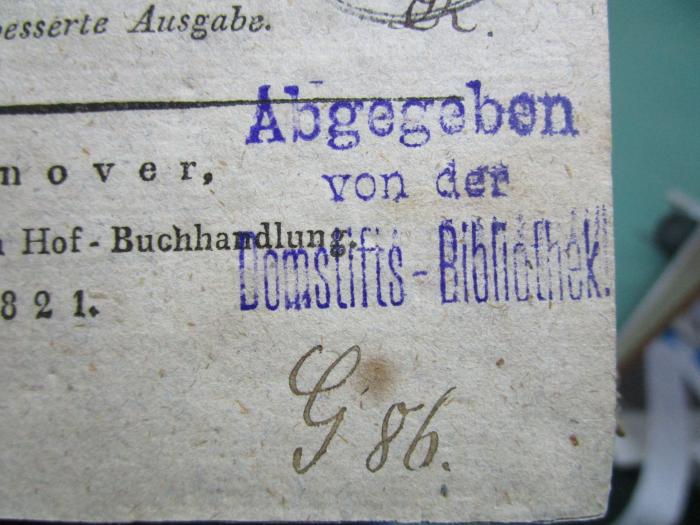 besserte Ausgabe.
R.
Abgegeben
von der
Domstifts-Bibliothek.
nover,
n Hof-Buchhandlung.
821.
G 86.